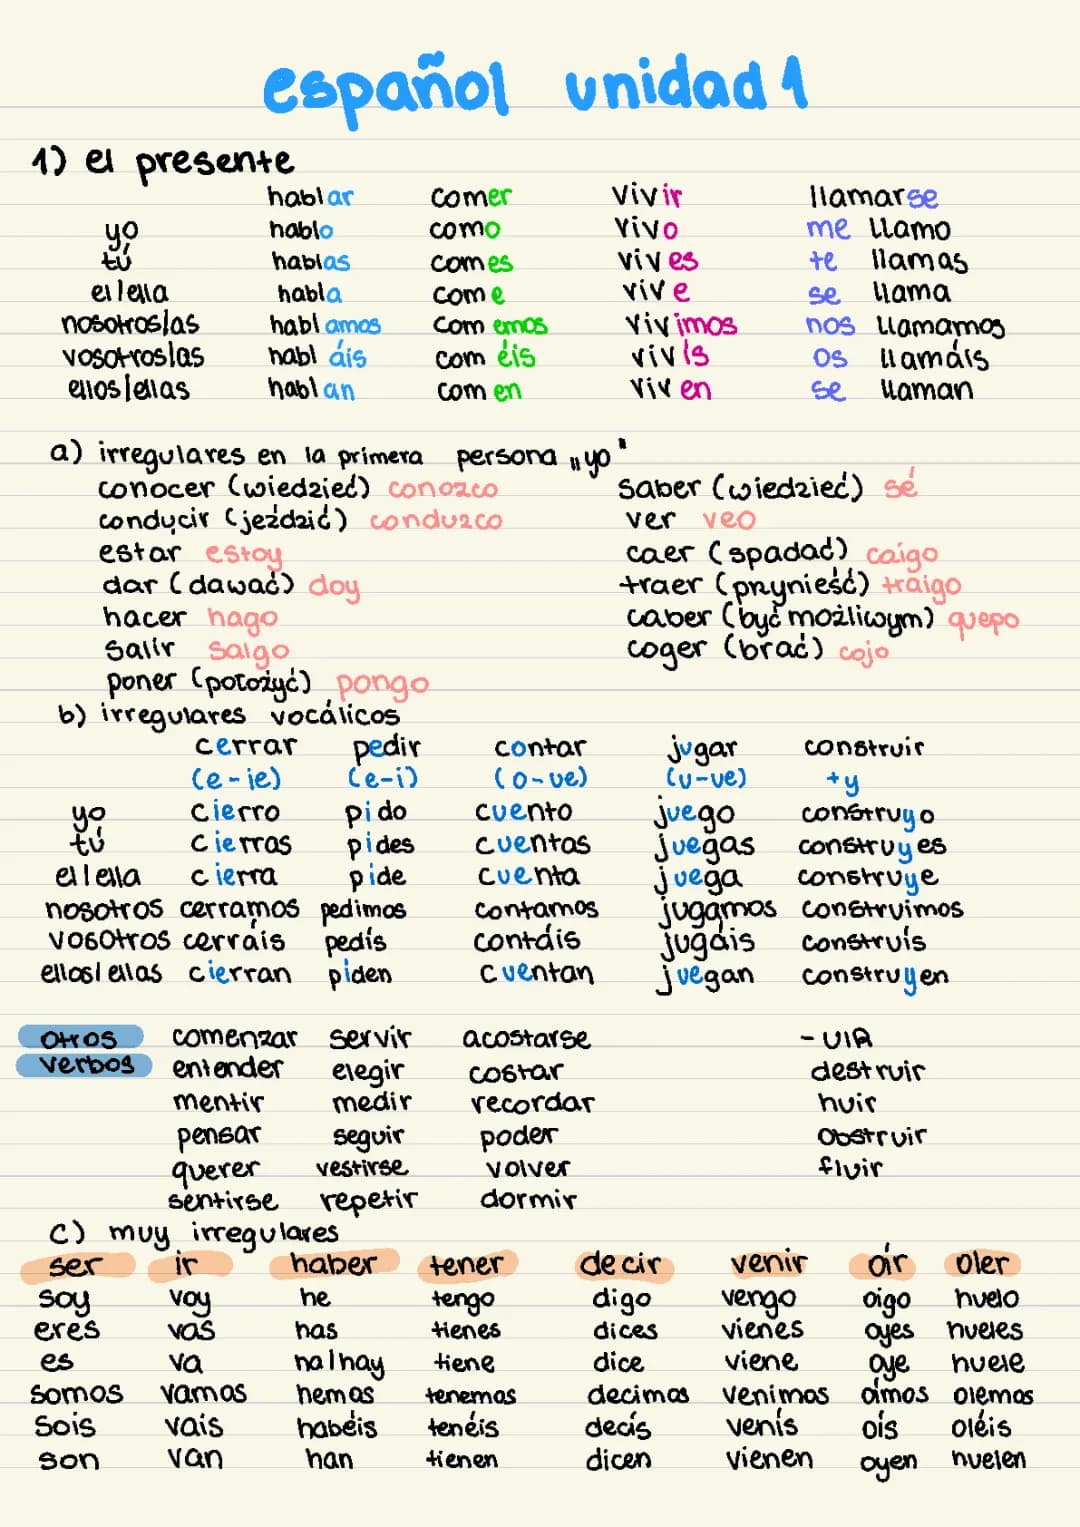 español unidad 1
1) el presente
hablar comer vivir llamarse
yo hablo como vivo me llamo
tú hablas comes vives te llamas
el/ella habla come vive se llama
nosotros/as hablamos comemos vivimos nos llamamos
vosotros/as habláis coméis vivís os llamáis
ellos/ellas hablan comen viven se llaman
a) irregulares en la primera persona „yo"
conocer (wiedzieć) conozco saber (wiedzieć) sé
conducir (jeździć) conduzco ver veo
estar estoy caer (spadać) caigo
dar (dawać) doy traer (prynieść) traigo
hacer hago caber (być możliwym) quepo
salir salgo coger (brać) cojo
poner (położyć) pongo
b) irregulares vocálicos
cerrar pedir contar jugar construir
(e-ie) (e-i) (o-ue) (u-ue) +y
yo cierro pido cuento juego construyo
tú cierras pides cuentas juegas construyes
el/ella cierra pide cuenta juega construye
nosotros cerramos pedimos contamos jugamos construimos
vosotros cerráis pedís contáis jugáis construís
ellos/ellas cierran piden cuentan juegan construyen
otros comenzar servir acostarse -UIR
verbos entender elegir costar destruir
mentir medir recordar huir
pensar seguir poder obstruir
querer vestirse volver fluir
sentirse repetir dormir
c) muy irregulares
ser ir haber tener decir venir oír oler
soy voy he tengo digo vengo oigo huelo
eres vas has tienes dices vienes oyes hueles
es va ha/hay tiene dice viene oye huele
somos vamos hemos tenemos decimos venimos oímos olemos
sois vais habéis tenéis decís venís oís oléis
son van han tienen dicen vienen oyen huelen